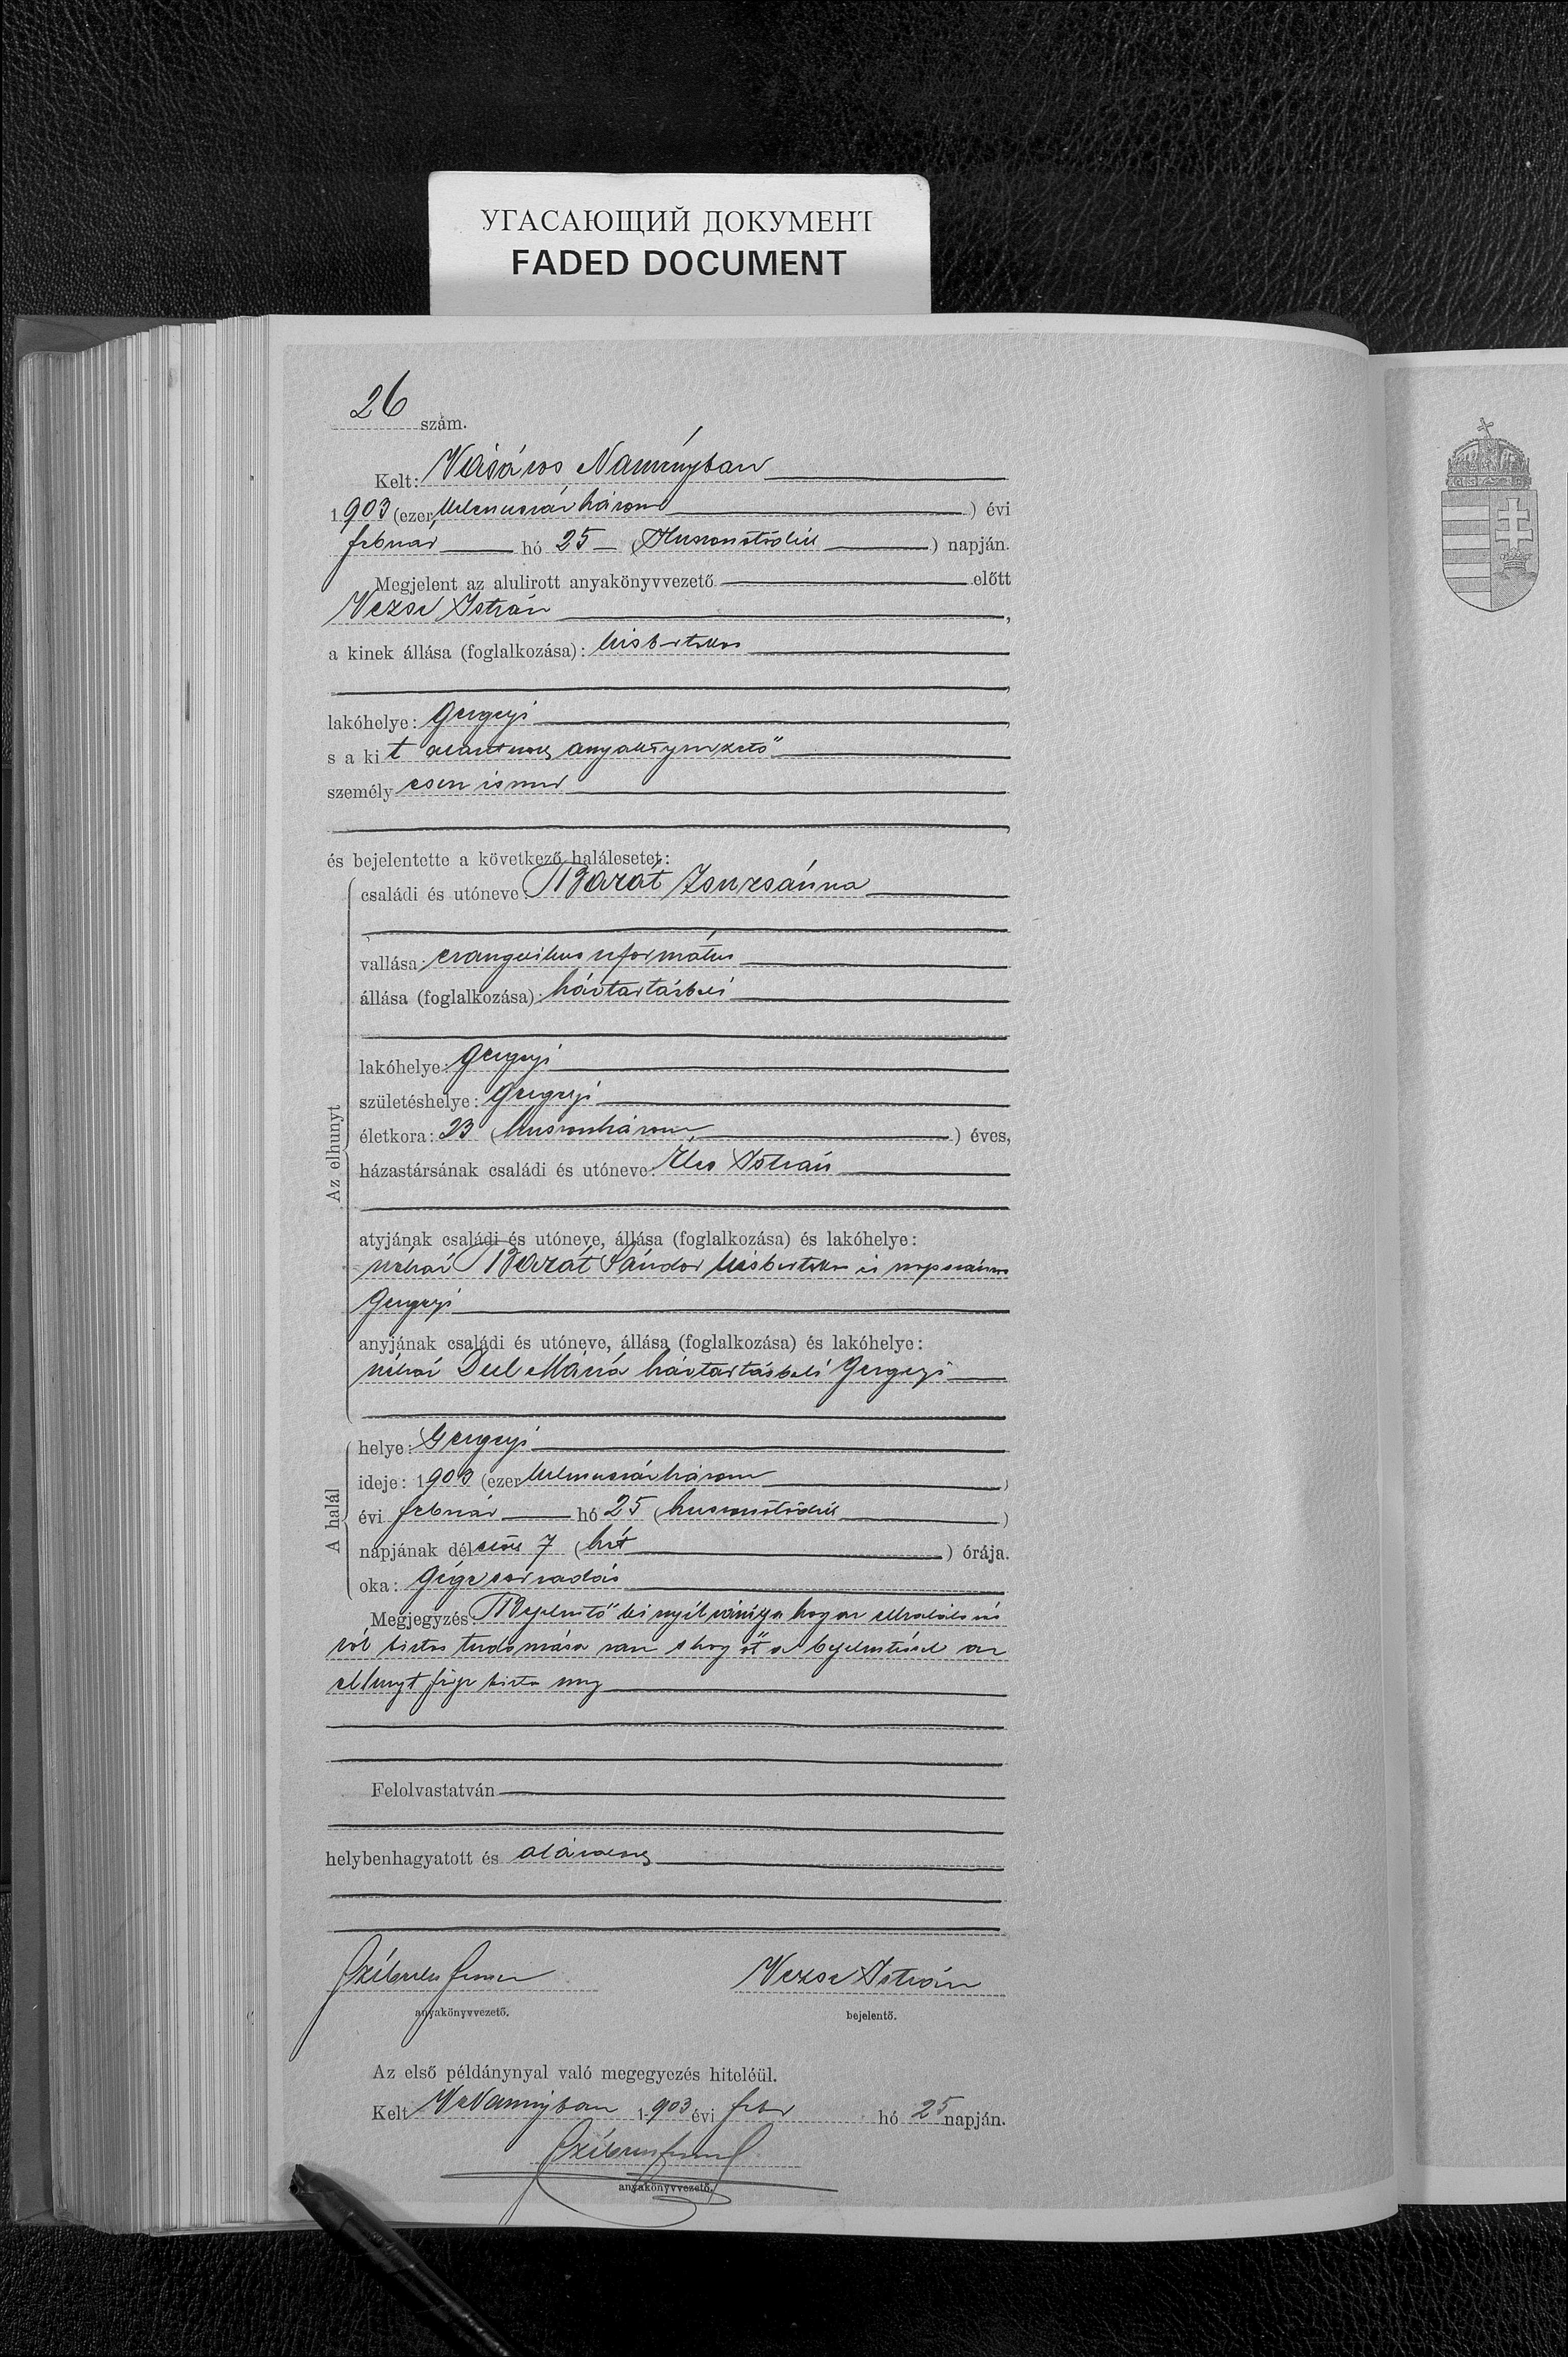 УГАСАЮЩИЙ ДОКУМЕНТ
FADED DOCUMENT
26 szám.
Kelt: Vásáros Naményban
1903 (ezer kilencszázhárom) évi
február hó 25 (Huszonötödik) napján.
Megjelent az alulirott anyakönyvvezető előtt
Vezse István,
a kinek állása (foglalkozása): kisbirtokos
lakóhelye: Gergeyi
s a kit anyakönyvvezető
személyesen ismer
és bejelentette a következő halálesetet:
Az elhunyt
családi és utóneve: Barát Zsuzsánna
vallása: evangelikus református
állása (foglalkozása): háztartásbeli
lakóhelye: Gergeyi
születéshelye: Gergeyi
életkora: 23 (huszonhárom) éves,
házastársának családi és utóneve: István
atyjának családi és utóneve, állása (foglalkozása) és lakóhelye:
néhai Barát Sándor kisbirtokos és napszámos
Gergeyi
anyjának családi és utóneve, állása (foglalkozása) és lakóhelye:
néhai Deel Mária háztartásbeli Gergeyi
A halál
helye: Gergeyi
ideje: 1903 (ezer kilencszázhárom)
évi február hó 25 (huszonötödik)
napjának délelőtt 7 (hét) órája.
oka: Gégesorvadás
Megjegyzés: Bejelentő kinyilvánitja hogy az elhalálozás
ról biztos tudomása van s hogy őt a bejelentéssel az
elhunyt férje bizta meg
Felolvastatván
helybenhagyatott és aláiratott
anyakönyvvezető.
Vezse István
bejelentő.
Az első példánynyal való megegyezés hiteléül.
Kelt VNaményban 1903 évi febr hó 25 napján.
anyakönyvvezető.